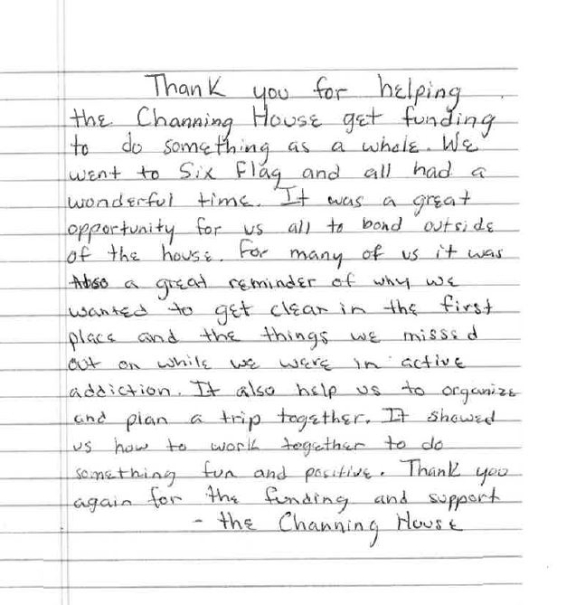 Thank you for helping
the Channing House get funding
to do something as a whole. We
went to Six Flag and all had a
wonderful time. It was a great
opportunity for us all to bond outside
of the house. For many of us it was
also a great reminder of why we
wanted to get clean in the first
place and the things we missed
out on while we were in active
addiction. It also help us to organize
and plan a trip together. It showed
us how to work together to do
something fun and positive. Thank you
again for the funding and support
- the Channing House